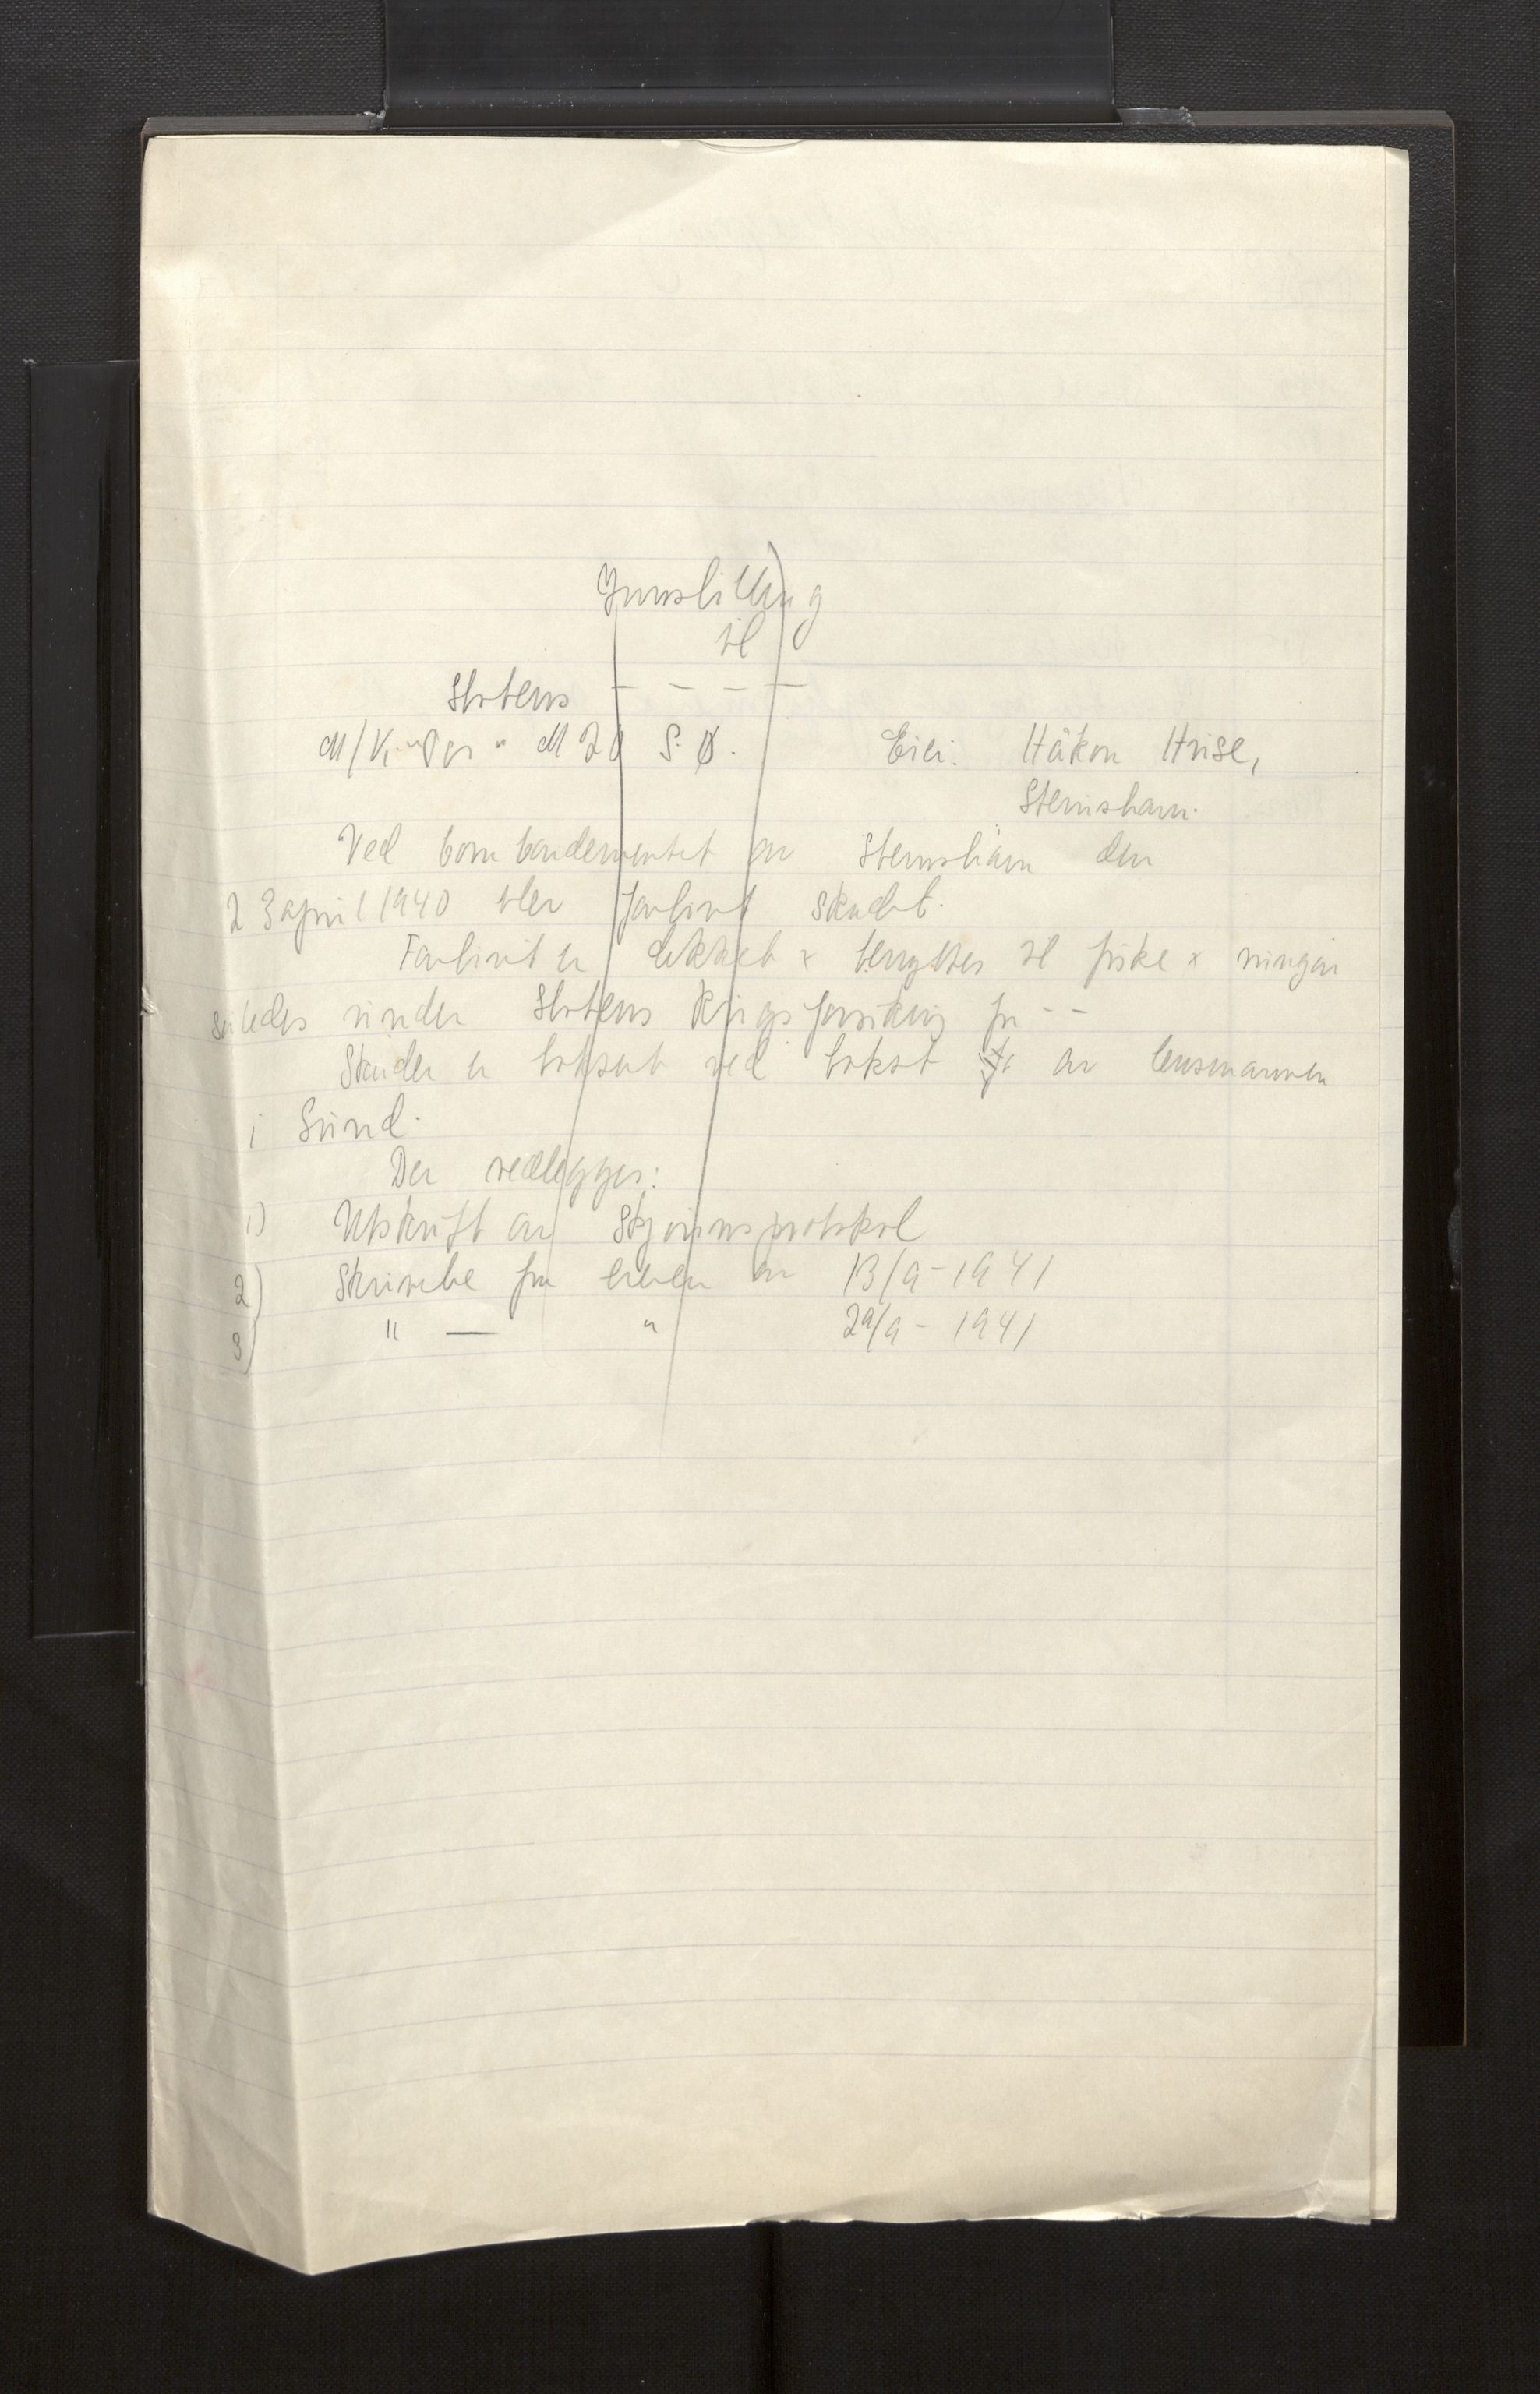 Innstilling
til
Statens - - - -
M/K "Par" M 20 S.Ø. Eier: Håkon Huse,
Steinshavn.
Ved bombardementet av Steinshavn den
23 april 1940 blev fartøiet skadet.
Fartøiet er dekket & benyttes til fiske & inngår
således under Statens Krigsforsikring for - -
Skaden er taksert ved takst av lensmannen
i Sund.
Der vedlegges:
1) Utskrift av Skjønnsprotokol
2) Skrivelse fra eieren av 13/9-1941
3) " — " 29/9-1941